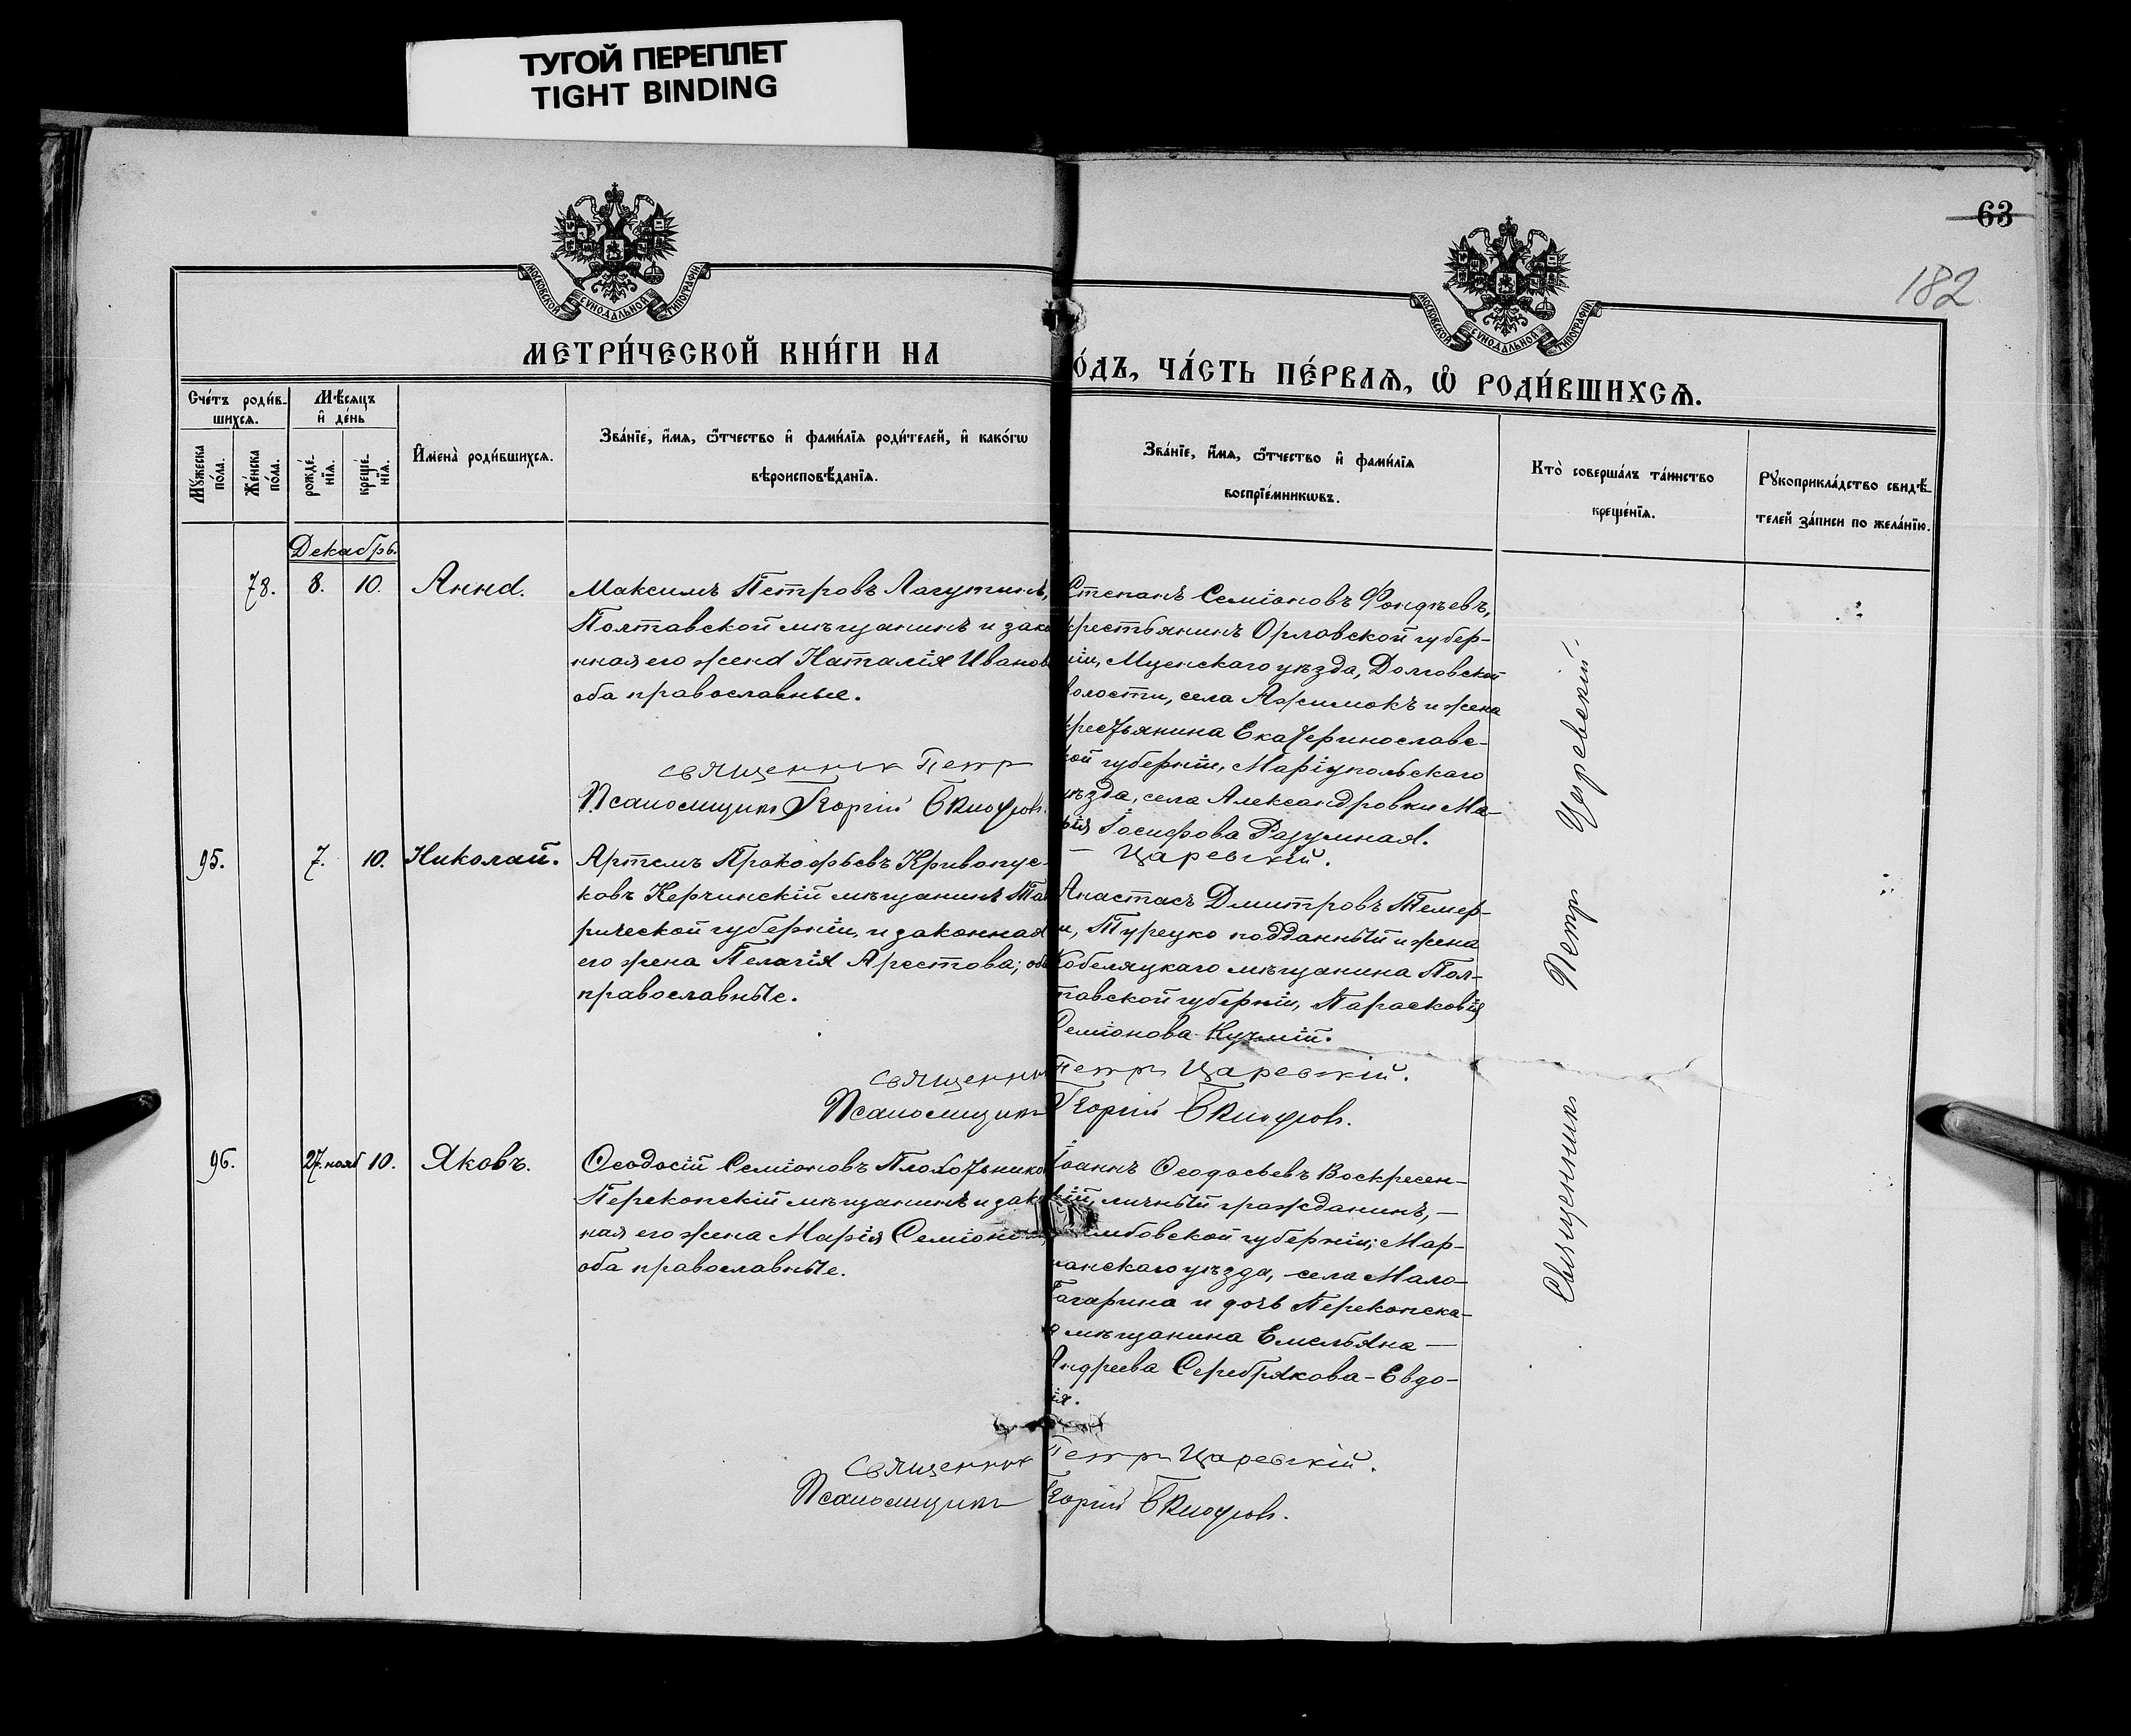 ТУГОЙ ПЕРЕПЛЕТ
TIGHT BINDING
63
182
МОСКОВСКОЙ СУНОДАЛЬНОЙ ТИПОГРАФІИ
МОСКОВСКОЙ СУНОДАЛЬНОЙ ТИПОГРАФІИ
МЕТРИ́ЧЕСКОЙ КНИ́ГИ НА
О́ДЪ, ЧА́СТЬ ПЕ́РВАѦ, Ѡ РОДИ́ВШИХСѦ.
Сче́тъ роди́в-
шихсѧ.
Мѣ́сяцъ
и҆ де́нь
Мꙋ́жеска
по́ла.
Же́нска
по́ла.
рожде́-
нїѧ.
креще́-
нїѧ.
И҆мена̀ роди́вшихсѧ.
Зва́нїе, и҆́мѧ, ѻ҆́тчество и҆ фами́лїѧ роди́телей, и҆ како́гѡ
вѣроисповѣ́данїѧ.
Зва́нїе, и҆́мѧ, ѻ҆́тчество и҆ фами́лїѧ
воспрїе́мникѡвъ.
Кто̀ соверша́лъ та́инство
креще́нїѧ.
Рꙋкоприкла́дство свидѣ́-
телей за́писи по жела́нїю.
Декабрь.
78. 8. 10. Анна.
Максимъ Петровъ Лагутинъ,
Полтавской мѣщанинъ и зако
нная его жена Наталія Иванов
оба православные.
священник Петр
Псаломщикъ Георгій
Степанъ Семіоновъ Фондѣевъ,
крестьянинъ Орловской губер-
ніи, Мценскаго уѣзда, Долговской
волости, села Ажимокъ и жена
крестьянина Екатеринославс-
кой губерніи, Маріупольскаго
уѣзда, села Александровки Ма-
рія Іосифова Разумная.
— Царевскій.
95. 7. 10. Николай.
Артемъ Прокофьевъ Кривопус-
ковъ Керчинскій мѣщанинъ Тав
рической губерніи, и законная
его жена Пелагія Арестова; оба
православные.
Анастасъ Дмитровъ Темер-
и, Турецко подданный и жена
Кобеляцкаго мѣщанина Пол-
тавской губерніи, Парасковія
Семіонова Кучмій.
священник Петръ Царевскій.
Псаломщикъ Георгій
96. 27. нояб 10. Яковъ.
Ѳеодосій Семіоновъ Плохотьнико
Перекопскій мѣщанинъ и зако
ная его жена Марія Семіонова
оба православные.
Іоаннъ Ѳеодосьевъ Воскресен-
скій, личный гражданинъ, —
мбовской губерніи; Мор-
шанскаго уѣзда, села Мало-
Гагарина и дочь Перекопска-
го мѣщанина Емельяна —
Андреева Серебрякова - Евдо-
кія.
священник Петръ Царевскій.
Псаломщикъ Георгій
Священникъ Петръ Царевскій